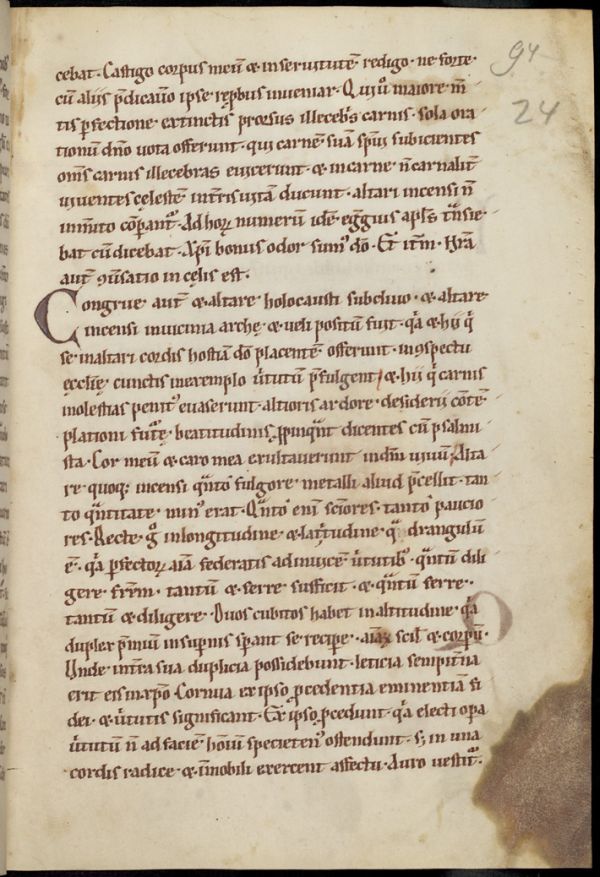 94
24
cebat. Castigo corpus meū & in seruitutē redigo. ne forte.
cū aliis p̄dicauero ipse reprobus inueniar. Qui ū maiore m̄
tis ꝑfectione extinctis prorsus illecebris carnis. sola ora
tionū dn̄o uota offerunt. qui carnē suā spui subicientes
om̄s carnis illecebras euicerunt. & in carne n̄ carnalit̄
uiuentes cęlestē in t̄ris uitā ducunt. altari incensi n̄
inmerito cōparant᷑. Ad horꝝ numerū idē egregius apl̄s t᷑nsie
bat cū dicebat. Xp̄i bonus odor sum᷒ do. Et it̄m. Nr̄a
aut̄ 9ūsatio in cęlis est.
Congrue aut̄ & altare holocausti sub diuo. & altare
incensi in uicinia archę & ueli positū fuit. q̄a & hii q̄
se in altari cordis hostiā do placentē offerunt. in 9spectu
ęcclię cunctis in exemplo uirtutū p̄fulgent. & hii q̄ carnis
molestias penit᷒ euaserunt. altioris ardore desiderii cōtē
plationi futurę beatitudinis ꝓpinquant dicentes cū psalmi
sta. Cor meū & caro mea exultauerunt in dm̄ uiuū. Alta
re quoq; incensi quanto fulgore metalli aliud p̄cellit. tan
to quantitate min᷒ erat. Quanto eni sc̄iores. tanto paucio
res. Recte g̊ in longitudine & latitudine quadrangulū
ē. q̄a ꝑfectorꝝ aīa federatis ad inuicē uirtutibꝰ quantū dili
gere fr̄em. tantum & ferre sufficit. & quantū ferre.
tantum & diligere. Duos cubitos habet in altitudine q̄a
duplex p̄miū in supernis sperant se recipe. aīaꝝ scil & corpū.
Unde in terra sua duplicia possidebunt. leticia sempiterna
erit eis in xp̄o. Cornua ex ipso ꝓcedentia eminentiā fi
dei & uirtutis significant. Ex ipso ꝓcedunt. q̄a electi opa
uirtutū n̄ ad faciē hoīum specieten᷒ ostendunt. s; in una
cordis radice & inmobili exercent affectu. Auro uestit᷑.